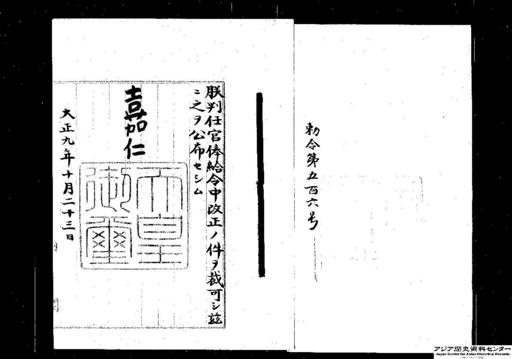 勅令第五百六号
朕判任官俸給令中改正ノ件ヲ裁可シ茲
ニ之ヲ公布セシム
嘉仁
天皇御璽
大正九年十月二十三日
アジア歴史資料センター
Japan Center for Asian Historical Records